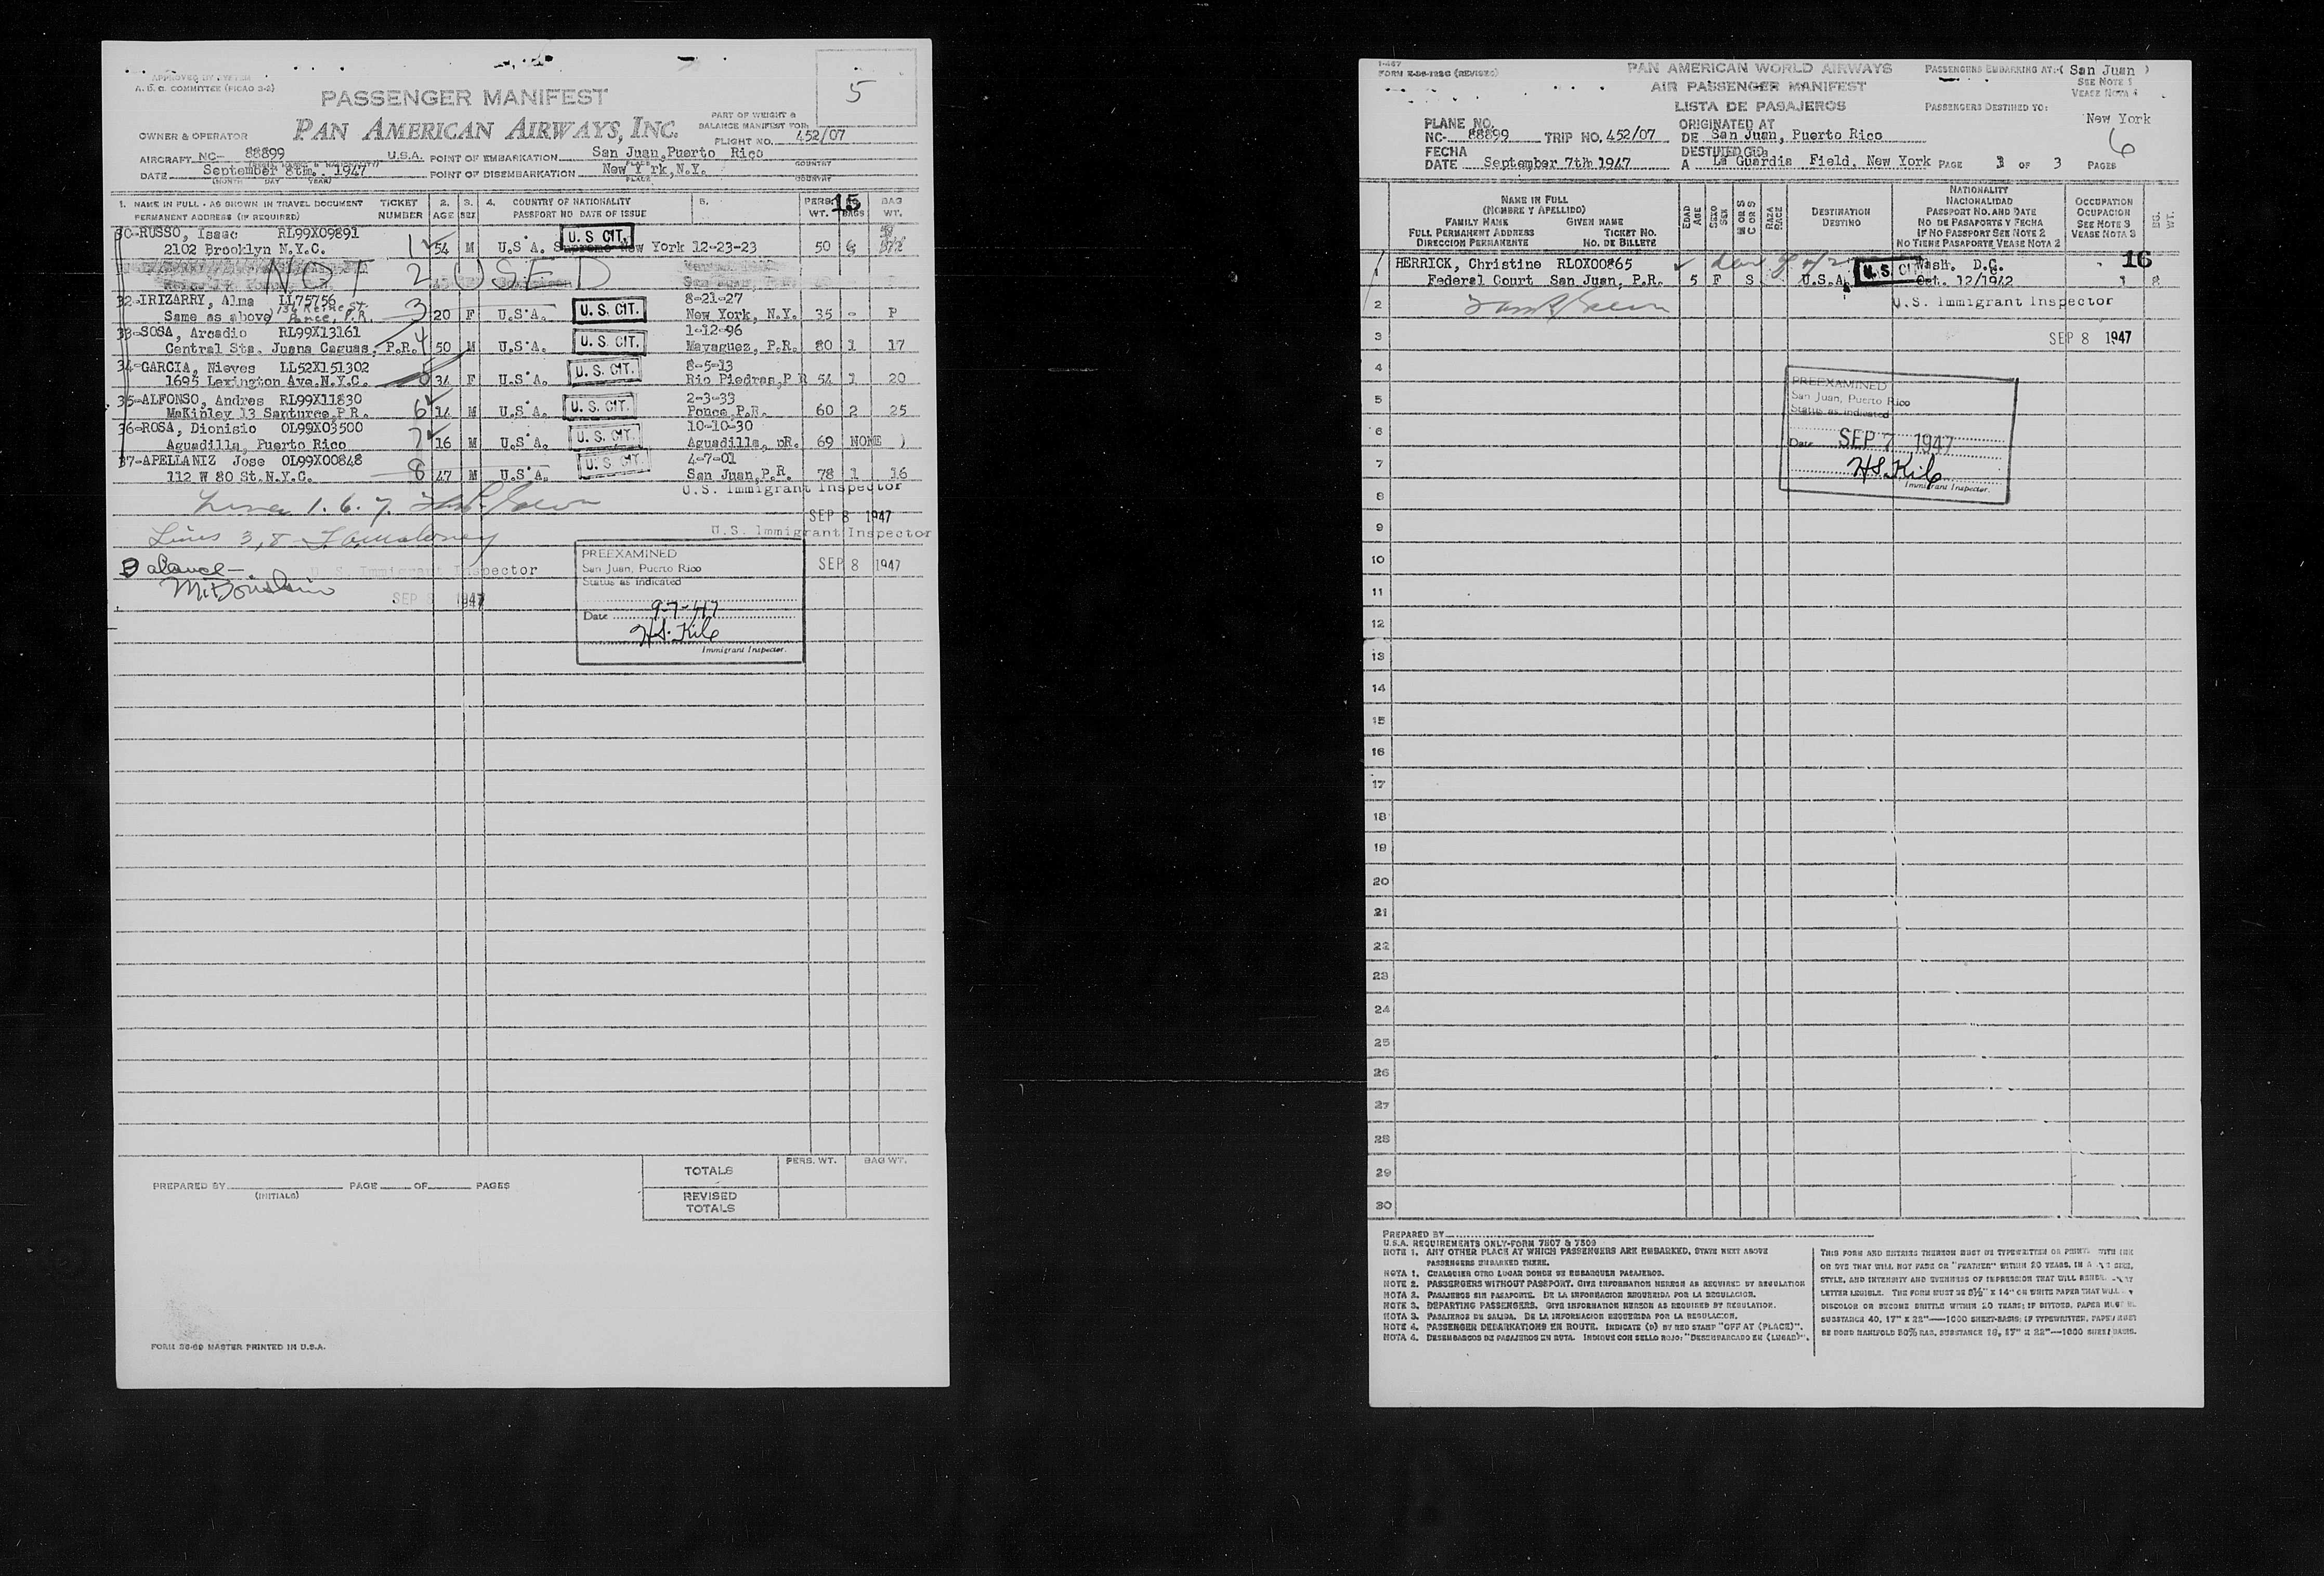 APPROVED BY SYSTEM
A. D. C. COMMITTEE (PICAO 3-2)
5
PASSENGER MANIFEST
PART OF WEIGHT &
BALANCE MANIFEST FOR:
OWNER & OPERATOR PAN AMERICAN AIRWAYS, INC.
FLIGHT NO. 452/07
AIRCRAFT NC- 88899 U.S.A. POINT OF EMBARKATION San Juan, Puerto Rico
PLACE COUNTRY
DATE September 8th. 1947 POINT OF DISEMBARKATION New Y rk, N.Y.
(MONTH DAY YEAR) PLACE COUNTRY
1. NAME IN FULL - AS SHOWN IN TRAVEL DOCUMENT TICKET 2. 3. 4. COUNTRY OF NATIONALITY 5. PERS. BAG
PERMANENT ADDRESS (IF REQUIRED) NUMBER AGE SEX PASSPORT NO DATE OF ISSUE WT. BAGS WT.
15
30-RUSSO, Isaac RL99X09891 U. S CIT.
2102 Brooklyn N.Y.C. 1 54 M U.S A. Supreme New York 12-23-23 50
NOT 2 USED
32-IRIZARRY, Alma LL75756 8-21-27
Same as above) Ponce, P.R. 3 20 F U.S.A. U. S. CIT. New York, N.Y. 35 - P
33-SOSA, Arcadio RL99X13161 1-12-96
Central Sta. Juana Caguas, P.R. 4 50 M U.S.A. U. S. CIT. Mayaguez, P.R. 80 1 17
34-GARCIA, Nieves LL52X151302 5 8-5-13
1695 Lexington Ave.N.Y.C. 34 F U.S.A. U. S. CIT. Rio Piedras,P R 54 1 20
35-ALFONSO, Andres RL99X11830 2-3-33
McKinley 13 Santurce,P.R. 6 14 M U.S.A. U. S. CIT. Ponce,P.R. 60 2 25
36-ROSA, Dionisio OL99X03500 10-10-30
Aguadilla, Puerto Rico 7 16 M U.S.A. U. S. CIT. Aguadilla, PR. 69 NONE )
37-APELLANIZ Jose OL99X00848 4-7-01
112 W 80 St.N.Y.C. 8 47 M U.S.A. U. S. CIT. San Juan,P.R. 78 1 16
U.S. Immigrant Inspector
Lines 1. 6. 7.
SEP 8 1947
Lines 3, 8
U.S. Immigrant Inspector
Balance-
U. S. Immigrant Inspector
SEP 8 1947
SEP 8 1947
PREEXAMINED
San Juan, Puerto Rico
Status as indicated
Date 9-7-47
H.S. Kile
Immigrant Inspector.
TOTALS PERS. WT. BAG WT.
REVISED
TOTALS
PREPARED BY PAGE OF PAGES
(INITIALS)
FORM 36-69 MASTER PRINTED IN U.S.A.
I-467
FORM E-D6-122C (REVISED)
PAN AMERICAN WORLD AIRWAYS
AIR PASSENGER MANIFEST
LISTA DE PASAJEROS
PASSENGERS EMBARKING AT:( San Juan )
SEE NOTE 1
VEASE NOTA 1
PASSENGERS DESTINED TO:
New York
6
PLANE NO.
NC- 88899 TRIP NO. 452/07
ORIGINATED AT
DE San Juan, Puerto Rico
FECHA
DATE September 7th 1947
DESTINED TO
A La Guardia Field, New York PAGE 3 OF 3 PAGES
NAME IN FULL
(NOMBRE Y APELLIDO)
FAMILY NAME GIVEN NAME
FULL PERMANENT ADDRESS TICKET NO.
DIRECCION PERMANENTE NO. DE BILLETE
EDAD AGE
SEXO SEX
M OR S
C OR S
RAZA RACE
DESTINATION
DESTINO
NATIONALITY
NACIONALIDAD
PASSPORT NO. AND DATE
NO DE PASAPORTE Y FECHA
IF NO PASSPORT SEE NOTE 2
NO TIENE PASAPORTE VEASE NOTA 2
OCCUPATION
OCUPACION
SEE NOTE 3
VEASE NOTA 3
16
1 HERRICK, Christine RLOX00865 U. S. CIT Wash. D.C.
Federal Court San Juan, P.R. 5 F S U.S.A. Oct. 12/1942 1 8
2 U.S. Immigrant Inspector
3 SEP 8 1947
4
5
6
7
8
PREEXAMINED
San Juan, Puerto Rico
Status as indicated
Date SEP 7 1947
H.S. Kile
Immigrant Inspector.
9
10
11
12
13
14
15
16
17
18
19
20
21
22
23
24
25
26
27
28
29
30
PREPARED BY
U.S.A. REQUIREMENTS ONLY-FORM 7507 & 7509
NOTE 1. ANY OTHER PLACE AT WHICH PASSENGERS ARE EMBARKED, STATE NEXT ABOVE
PASSENGERS EMBARKED THERE.
NOTA 1. CUALQUIER OTRO LUGAR DONDE SE EMBARQUEN PASAJEROS.
NOTE 2. PASSENGERS WITHOUT PASSPORT. GIVE INFORMATION HEREON AS REQUIRED BY REGULATION
NOTA 2. PASAJEROS SIN PASAPORTE. DE LA INFORMACION REQUERIDA POR LA REGULACION.
NOTE 3. DEPARTING PASSENGERS. GIVE INFORMATION HEREON AS REQUIRED BY REGULATION.
NOTA 3. PASAJEROS DE SALIDA. DE LA INFORMACION REQUERIDA POR LA REGULACION.
NOTE 4. PASSENGER DEBARKATIONS EN ROUTE. INDICATE (D) BY RED STAMP "OFF AT (PLACE)".
NOTA 4. DESEMBARCOS DE PASAJEROS EN RUTA. INDIQUE CON SELLO ROJO: "DESEMBARCADO EN (LUGAR)".
THIS FORM AND ENTRIES THEREON MUST BE TYPEWRITTEN OR PRINTE WITH INK
OR DYE THAT WILL NOT FADE OR "FEATHER" WITHIN 20 YEARS, IN A SIZE,
STYLE, AND INTENSITY AND EVENNESS OF IMPRESSION THAT WILL
LETTER LEGIBLE. THE FORM MUST BE 8½" X 14" ON WHITE PAPER THAT WILL
DISCOLOR OR BECOME BRITTLE WITHIN 20 YEARS; IF DITTOED, PAPER MUST BE
SUBSTANCE 40, 17" X 22"—1000 SHEET-BASIS; IF TYPEWRITTEN, PAPER MUST
BE BOND MANIFOLD 50% RAG, SUBSTANCE 18, 17" X 22"—1000 SHEET BASIS.